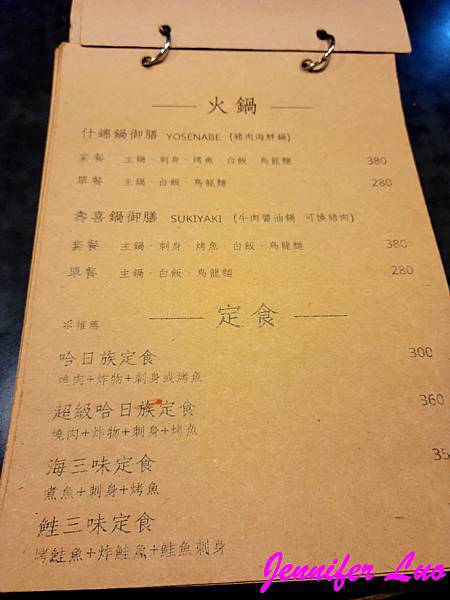 火鍋
什錦鍋御膳 YOSENABE (豬肉海鮮鍋)
套餐 主鍋·刺身·烤魚·白飯·烏龍麵 380
單餐 主鍋·白飯·烏龍麵 280
壽喜鍋御膳 SUKIYAKI (牛肉醬油鍋 可換豬肉)
套餐 主鍋·刺身·烤魚·白飯·烏龍麵 380
單餐 主鍋·白飯·烏龍麵 280
定食
※推薦
哈日族定食 300
燒肉+炸物+刺身或烤魚
超級哈日族定食 360
燒肉+炸物+刺身+烤魚
海三味定食 35
煮魚+刺身+烤魚
鮭三味定食
烤鮭魚+炸鮭魚+鮭魚刺身
Jennifer Luo